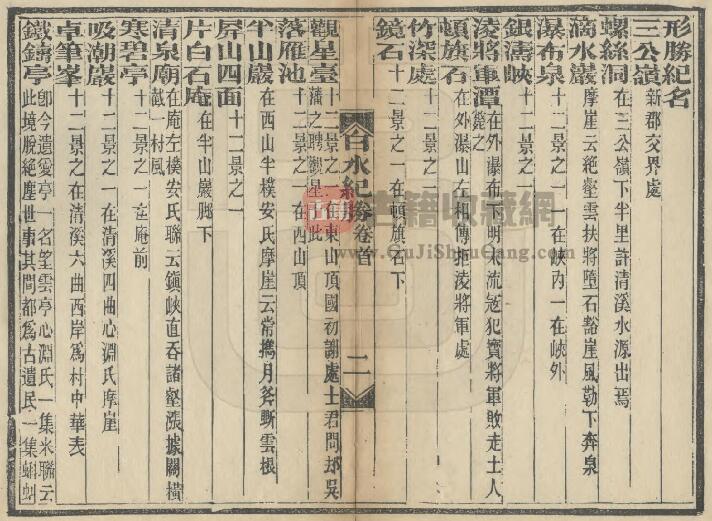 形勝紀名
三公嶺
新郡交界處
螺絲洞
在三公嶺下半里許清溪水源出焉
滴水巖
摩崖云絶壑雲扶將墮石豁崖風勒下奔泉
瀑布泉
十二景之一
銀濤峽
十二景之一一在峽內一在峽外
淩將軍潭
在外瀑布下明末流寇犯竇將軍敗走土人
斃之
頓旗石
在外瀑山左相傳拒淩將軍處
竹深處
十二景之一
鏡石
十二景之一在頓旗石下
白水紀勝卷首
二
觀星臺
十二景之一在東山頂國初謝處士君問却吳
藩之聘觀星此
落雁池
十二景之一在西山頂
半山巖
在西山半樸安氏摩崖云常擕月斧斷雲根
屏山四面
十二景之一
片白石庵
在半山巖脚下
清泉廟
在庵左樸安氏聯云鎭峽直吞諸壑漲據關橫
截一村風
寒碧亭
十二景之一在庵前
吸潮巖
十二景之一在清溪四曲心淵氏摩崖
卓筆峯
十二景之一在清溪六曲西岸爲村中華表
鐵鑄亭
卽今遺愛亭一名望雲亭心淵氏一集米聯云
此境脫絶塵世事其間都爲古遺民一集蝌蚪
古籍收藏網
www.GuJiShouCang.com